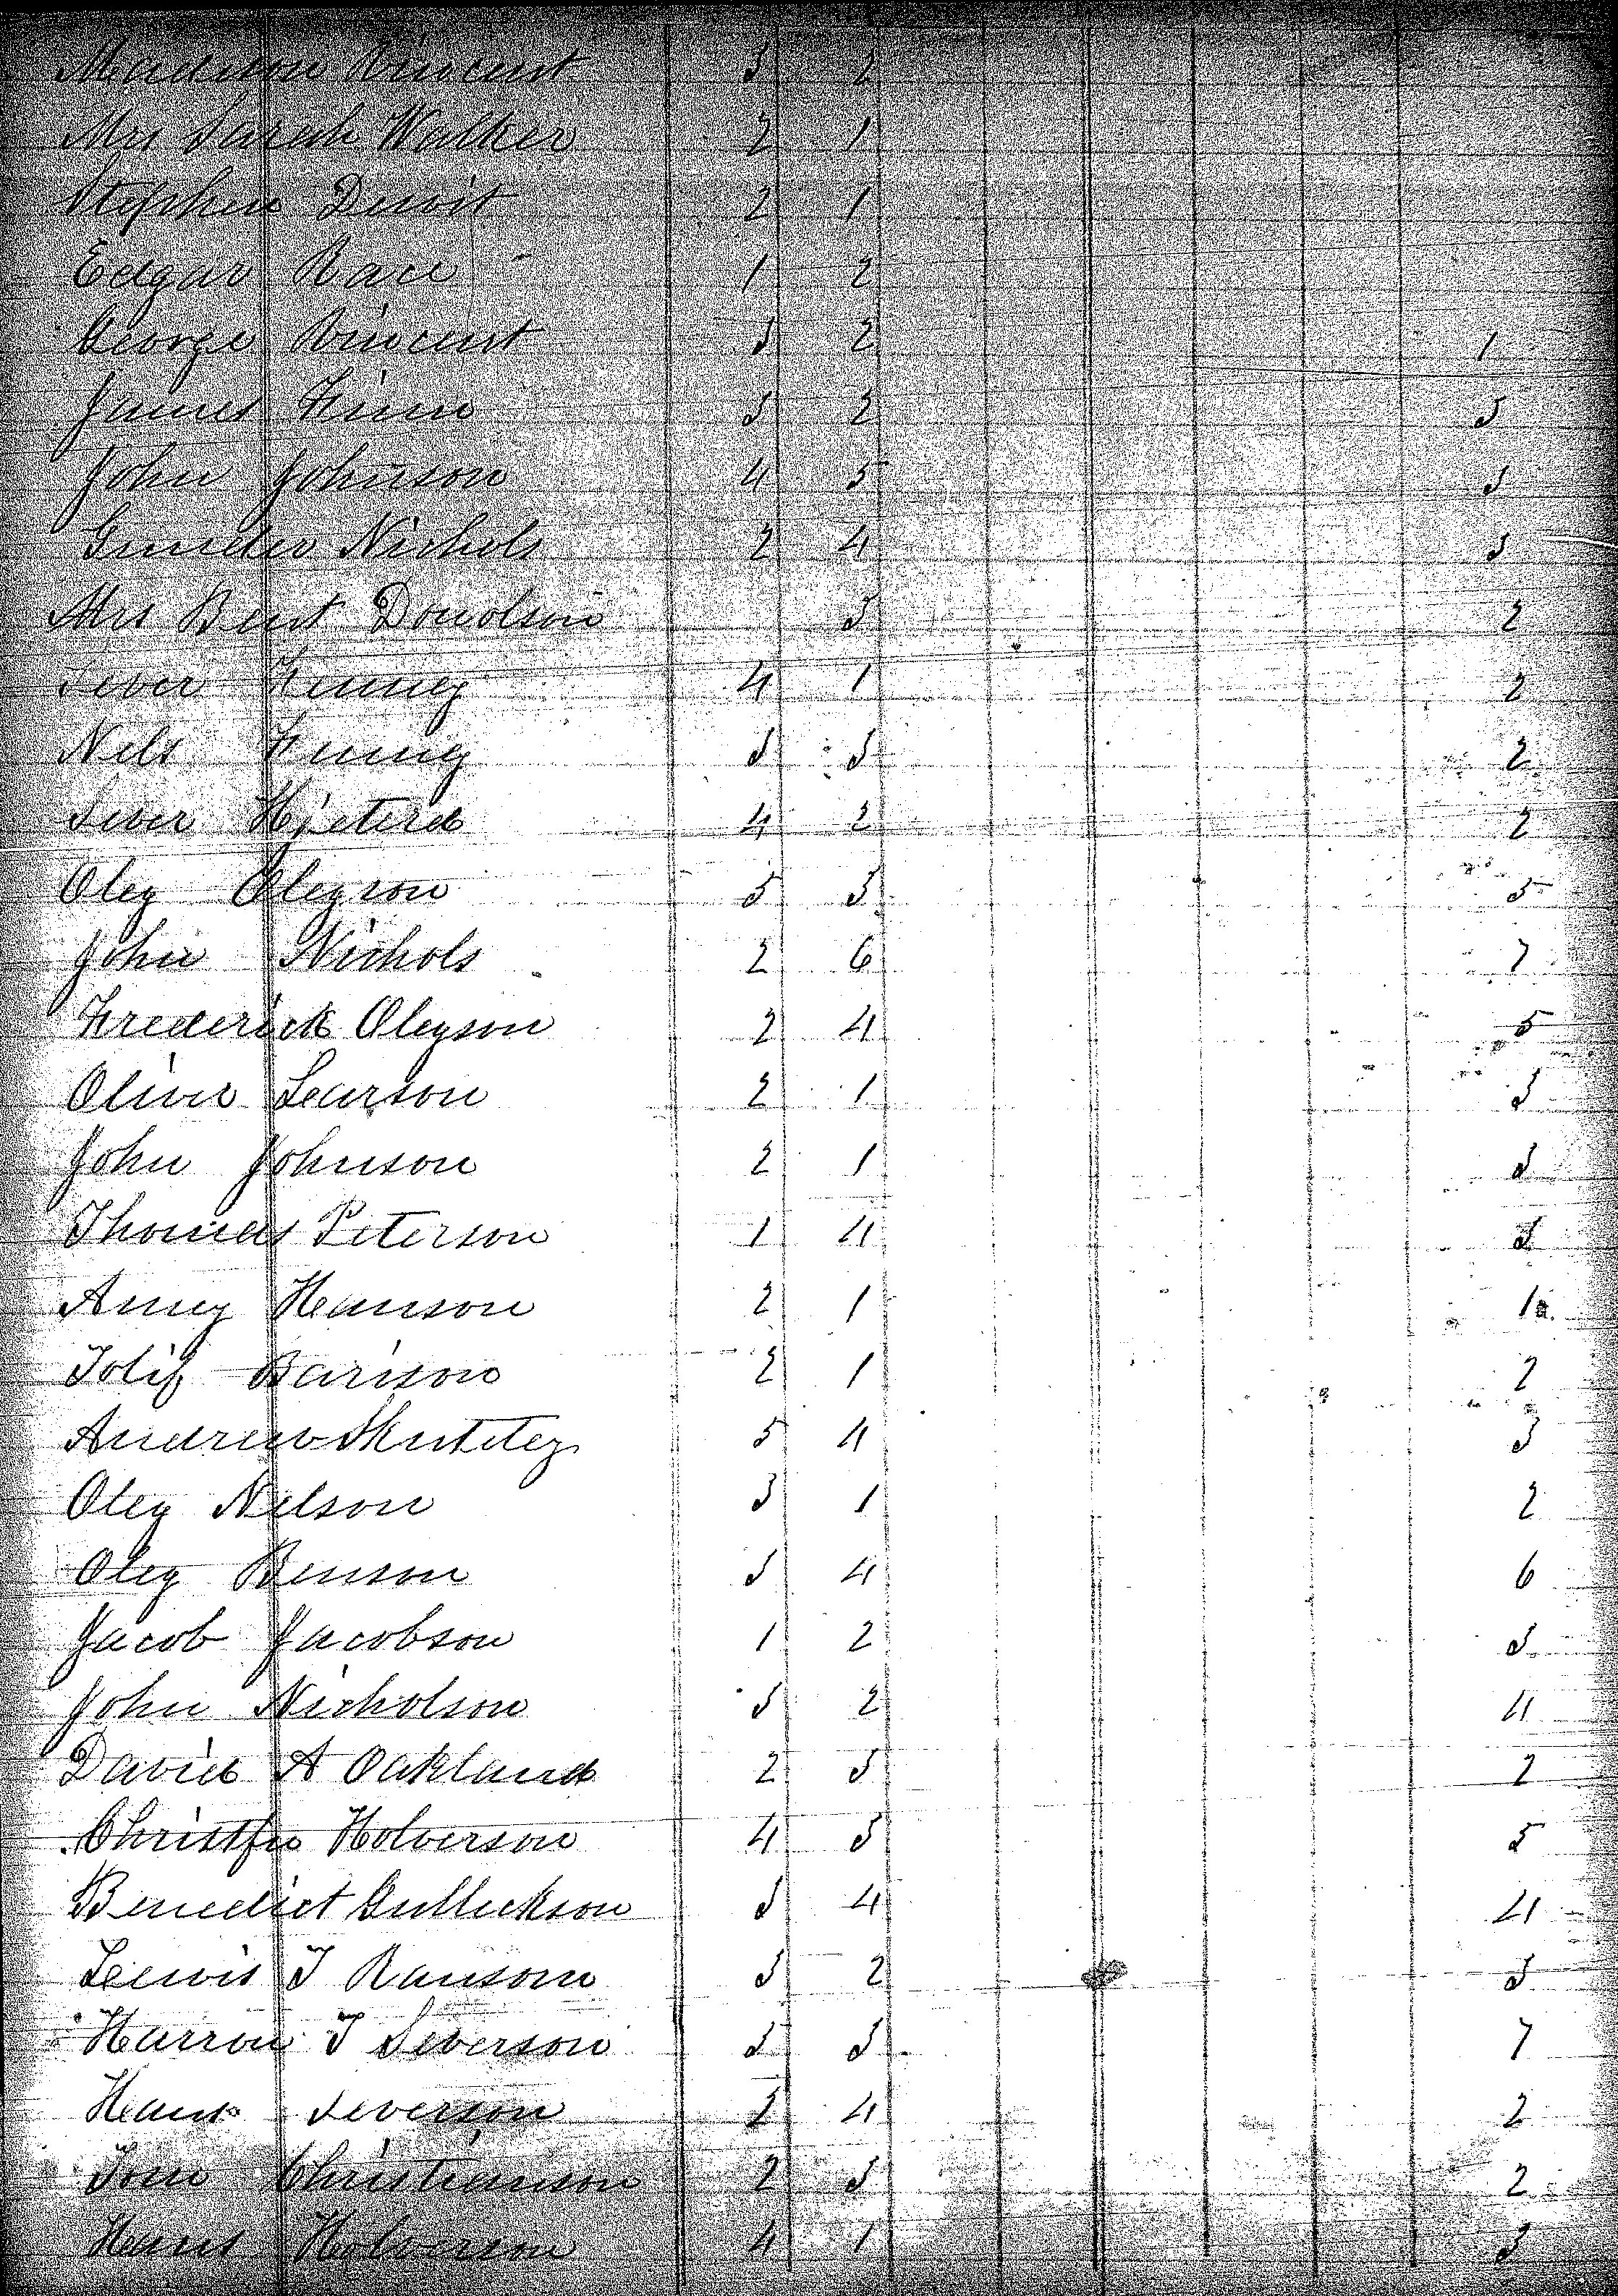 Madison Vincent 3 2
Mrs Sarah Walker 2 1
Stephen 2 1
Edgar Race 1 2
George Vincent 3 2 1
James Finn 3 2 3
John Johnson 4 5 3
Gunder Nichols 2 4 3
Mrs Bent Donolson 3 2
Sever 4 1 2
Nels 3 3 2
Sever 4 2 2
Oley Oleyson 5 3 5
John Nichols 2 6 7
Frederick Oleyson 2 4 5
Oliver Learson 2 1 3
John Johnson 2 1 3
Thomas Peterson 1 4 3
Amey Hanson 2 1 1
Barison 2 1 2
Andrew 5 4 3
Oley Nelson 3 1 2
Oley Benson 3 4 6
Jacob Jacobson 1 2 3
John Nicholson 3 2 4
David A Oakland 2 3 2
Holverson 4 3 5
Benedict Gullickson 3 4 4
Lewis T Ransom 3 2 3
T Severson 3 3 7
Severson 4 2
Tom Christianson 2 3 2
Hans Holverson 4 1 3